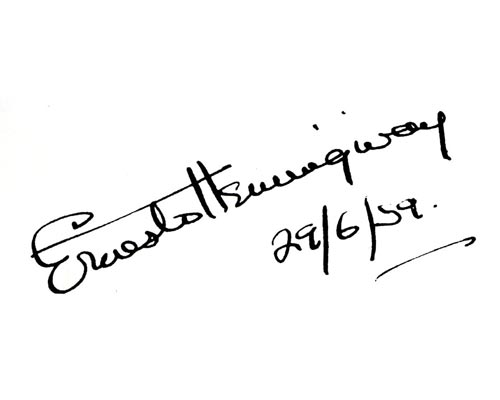 Ernesto Hemingway
29/6/59.